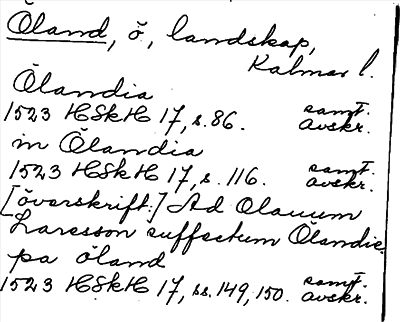 Öland, ö, landskap,
Kalmar l.
Ölandia
1523 HSkH 17, s. 86. samt. avskr.
in Ölandia
1523 HSkH 17, s. 116. samt. avskr.
[överskrift:] Ad Olauum
Larsson suffectum Ölandie.
pa öland
1523 HSkH 17, ss. 149, 150. samt. avskr.